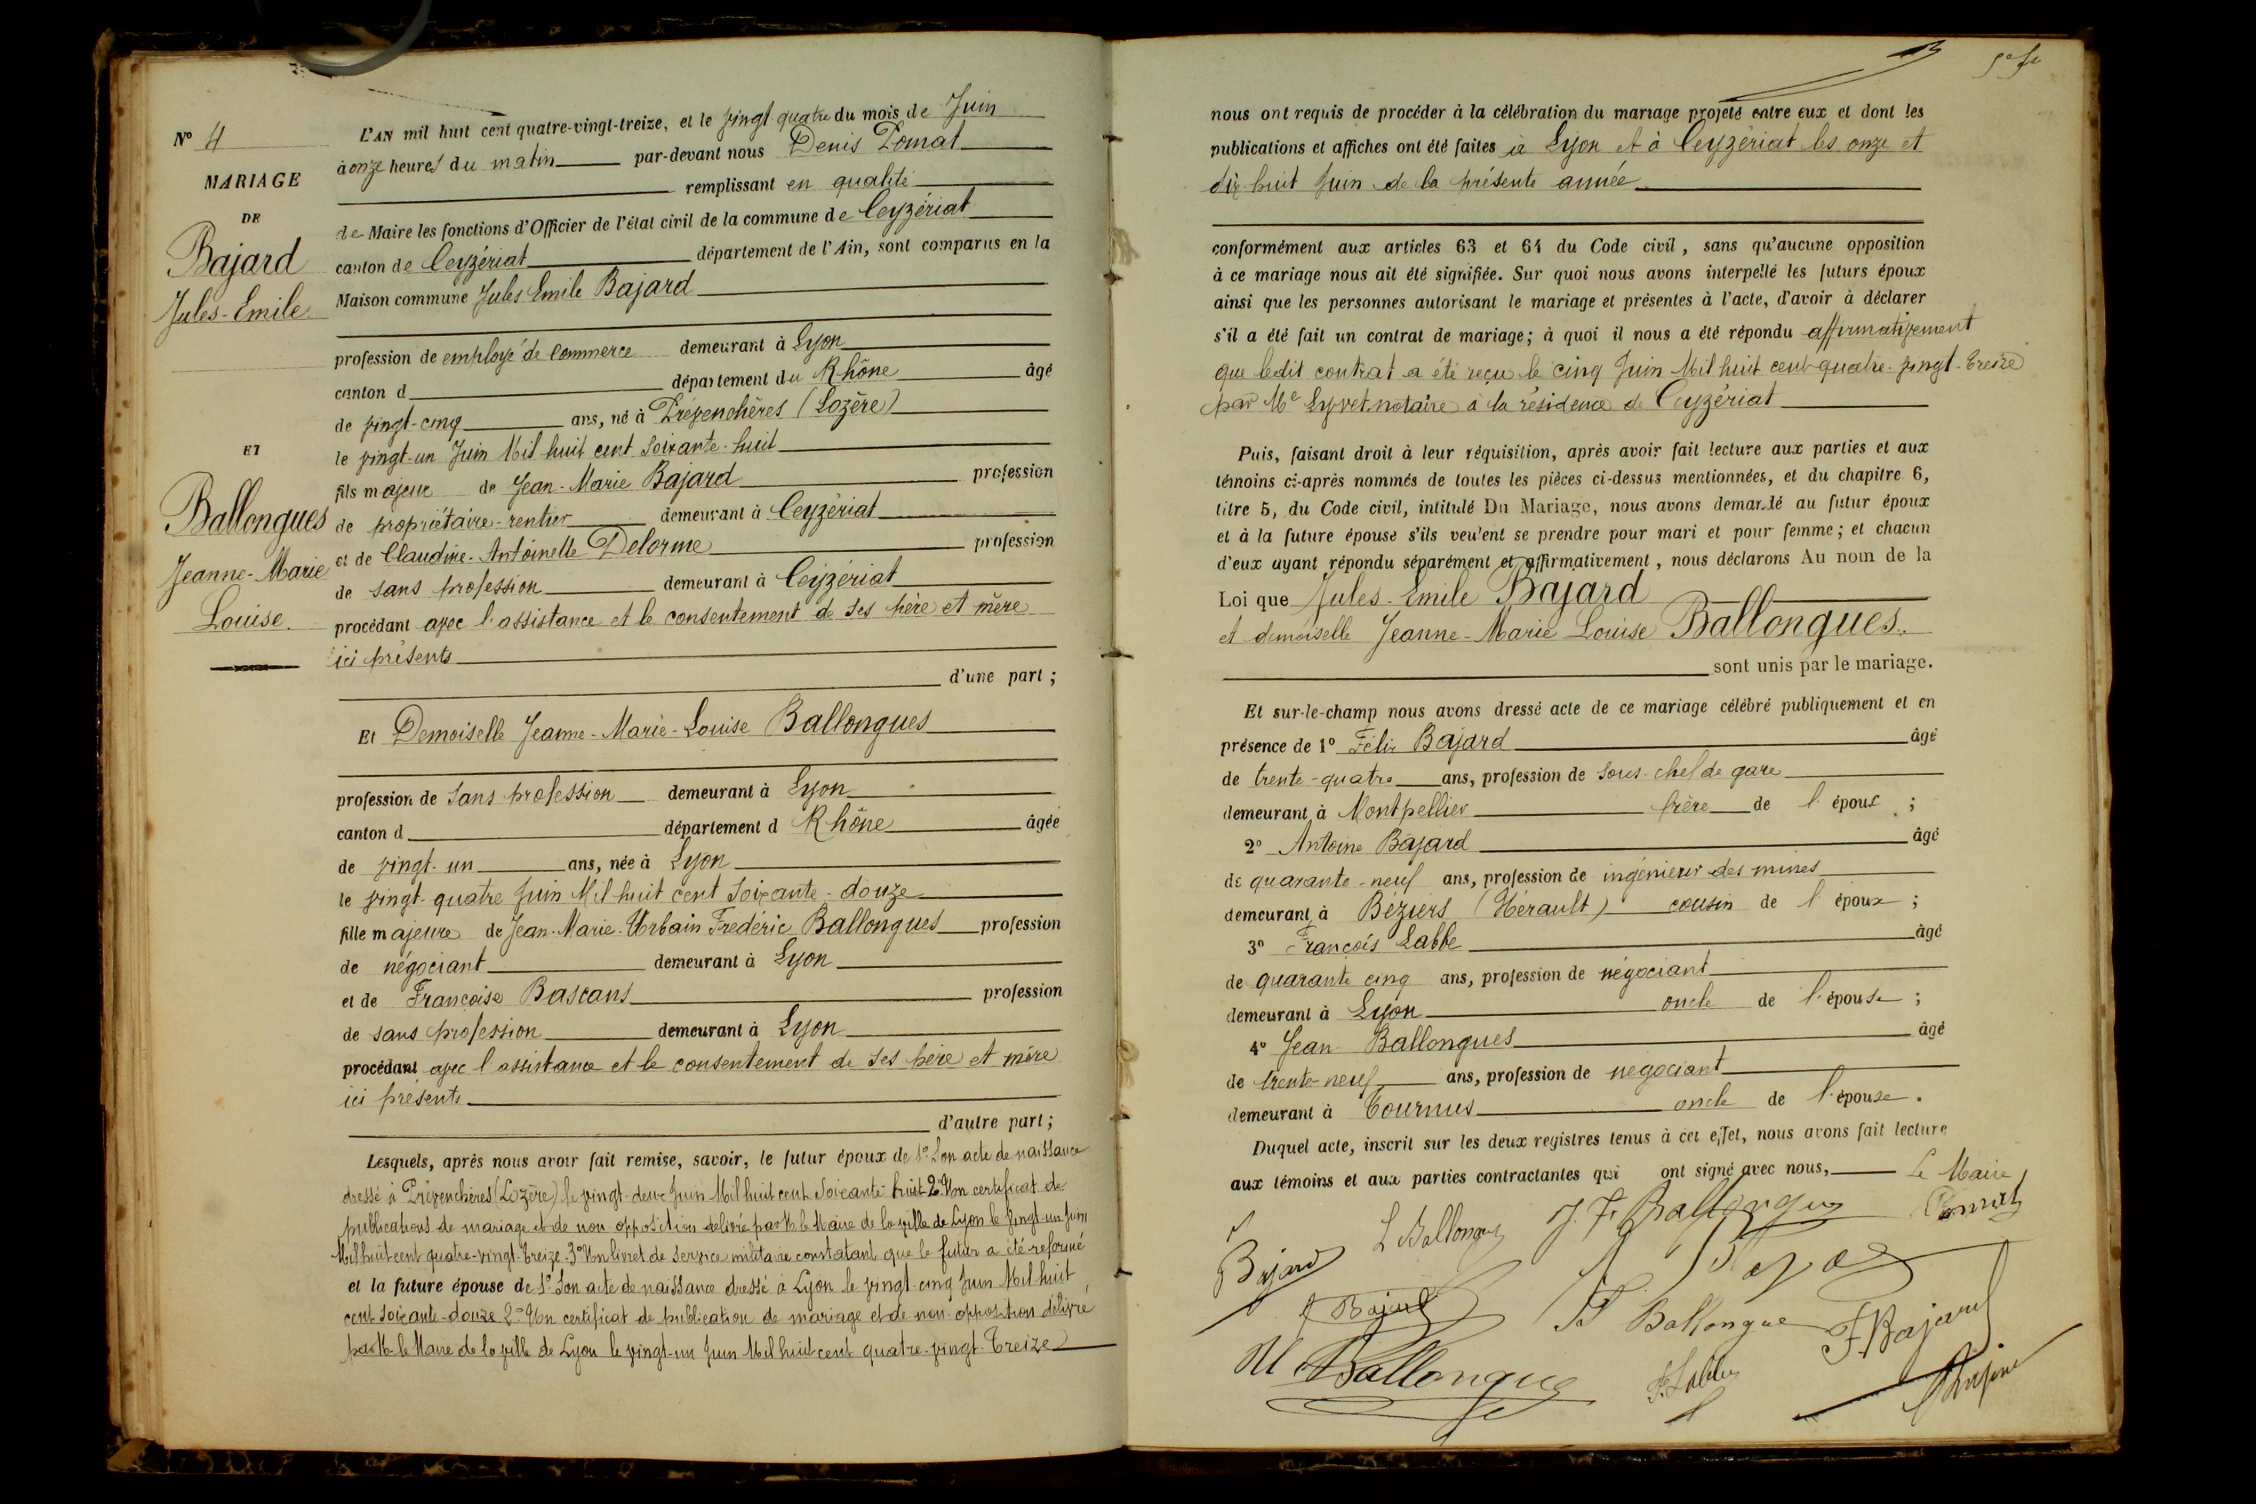 N° 4
MARIAGE
DE
Bajard
Jules-Emile
ET
Ballongues
Jeanne-Marie
Louise.
L'AN mil huit cent quatre-vingt-treize, et le vingt quatre du mois de Juin
à onze heures du matin par-devant nous Denis Pomat
remplissant en qualité
de Maire les fonctions d'Officier de l'état civil de la commune de Ceyzériat
canton de Ceyzériat département de l'Ain, sont comparus en la
Maison commune Jules Emile Bajard
profession de employé de Commerce demeurant à Lyon
canton d département du Rhône âgé
de vingt-cinq ans, né à Prévenchères (Lozère)
le vingt-un Juin Mil huit cent soixante-huit
fils majeur de Jean-Marie Bajard profession
de propriétaire-rentier demeurant à Ceyzériat
et de Claudine-Antoinette Delorme profession
de sans profession demeurant à Ceyzériat
procédant avec l'assistance et le consentement de ses père et mère
ici présents
d'une part ;
Et Demoiselle Jeanne-Marie-Louise Ballongues
profession de sans profession demeurant à Lyon
canton d département d Rhône âgée
de vingt-un ans, née à Lyon
le vingt-quatre Juin Mil huit cent soixante-douze
fille majeure de Jean-Marie-Urbain Frédéric Ballongues profession
de négociant demeurant à Lyon
et de Françoise Bascans profession
de sans profession demeurant à Lyon
procédant avec l'assistance et le consentement de ses père et mère
ici présents
d'autre part ;
Lesquels, après nous avoir fait remise, savoir, le futur époux de 1° Son acte de naissance
dressé à Prévenchères (Lozère) le vingt-deux Juin Mil huit cent soixante huit 2° Un certificat de
publications de mariage et de non opposition délivré par M. le Maire de la ville de Lyon le vingt-un Juin
Mil huit cent quatre-vingt-treize. 3° Un livret de service militaire constatant que le futur a été reformé
et la future épouse de 1° Son acte de naissance dressé à Lyon le vingt-cinq Juin Mil huit
cent soixante-douze 2° Un certificat de publication de mariage et de non-opposition délivré
par M. le Maire de la ville de Lyon le vingt-un Juin Mil huit cent quatre-vingt-treize
nous ont requis de procéder à la célébration du mariage projeté entre eux et dont les
publications et affiches ont été faites à Lyon et à Ceyzériat les onze et
dix-huit Juin de la présente année
conformément aux articles 63 et 64 du Code civil, sans qu'aucune opposition
à ce mariage nous ait été signifiée. Sur quoi nous avons interpellé les futurs époux
ainsi que les personnes autorisant le mariage et présentes à l'acte, d'avoir à déclarer
s'il a été fait un contrat de mariage ; à quoi il nous a été répondu affirmativement
que ledit contrat a été reçu le cinq Juin Mil huit cent quatre-vingt-treize
par Me Lyvet notaire à la résidence de Ceyzériat
Puis, faisant droit à leur réquisition, après avoir fait lecture aux parties et aux
témoins ci-après nommés de toutes les pièces ci-dessus mentionnées, et du chapitre 6,
titre 5, du Code civil, intitulé Du Mariage, nous avons demandé au futur époux
et à la future épouse s'ils veulent se prendre pour mari et pour femme ; et chacun
d'eux ayant répondu séparément et affirmativement, nous déclarons Au nom de la
Loi que Jules-Emile Bajard
et demoiselle Jeanne-Marie Louise Ballongues.
sont unis par le mariage.
Et sur-le-champ nous avons dressé acte de ce mariage célébré publiquement et en
présence de 1° Félix Bajard âgé
de trente-quatre ans, profession de sous-chef de gare
demeurant à Montpellier frère de l'époux ;
2° Antoine Bajard âgé
de quarante-neuf ans, profession de ingénieur des mines
demeurant à Béziers (Hérault) cousin de l'époux ;
3° François Labbe âgé
de quarante cinq ans, profession de négociant
demeurant à Lyon oncle de l'épouse ;
4° Jean Ballongues âgé
de trente-neuf ans, profession de négociant
demeurant à Tournus oncle de l'épouse.
Duquel acte, inscrit sur les deux registres tenus à cet effet, nous avons fait lecture
aux témoins et aux parties contractantes qui ont signé avec nous,
Le Maire
Pomat
L Ballongues
J. F. Ballongues
Bajard
Bajard
Ballongue
F. Bajard
M Ballongues